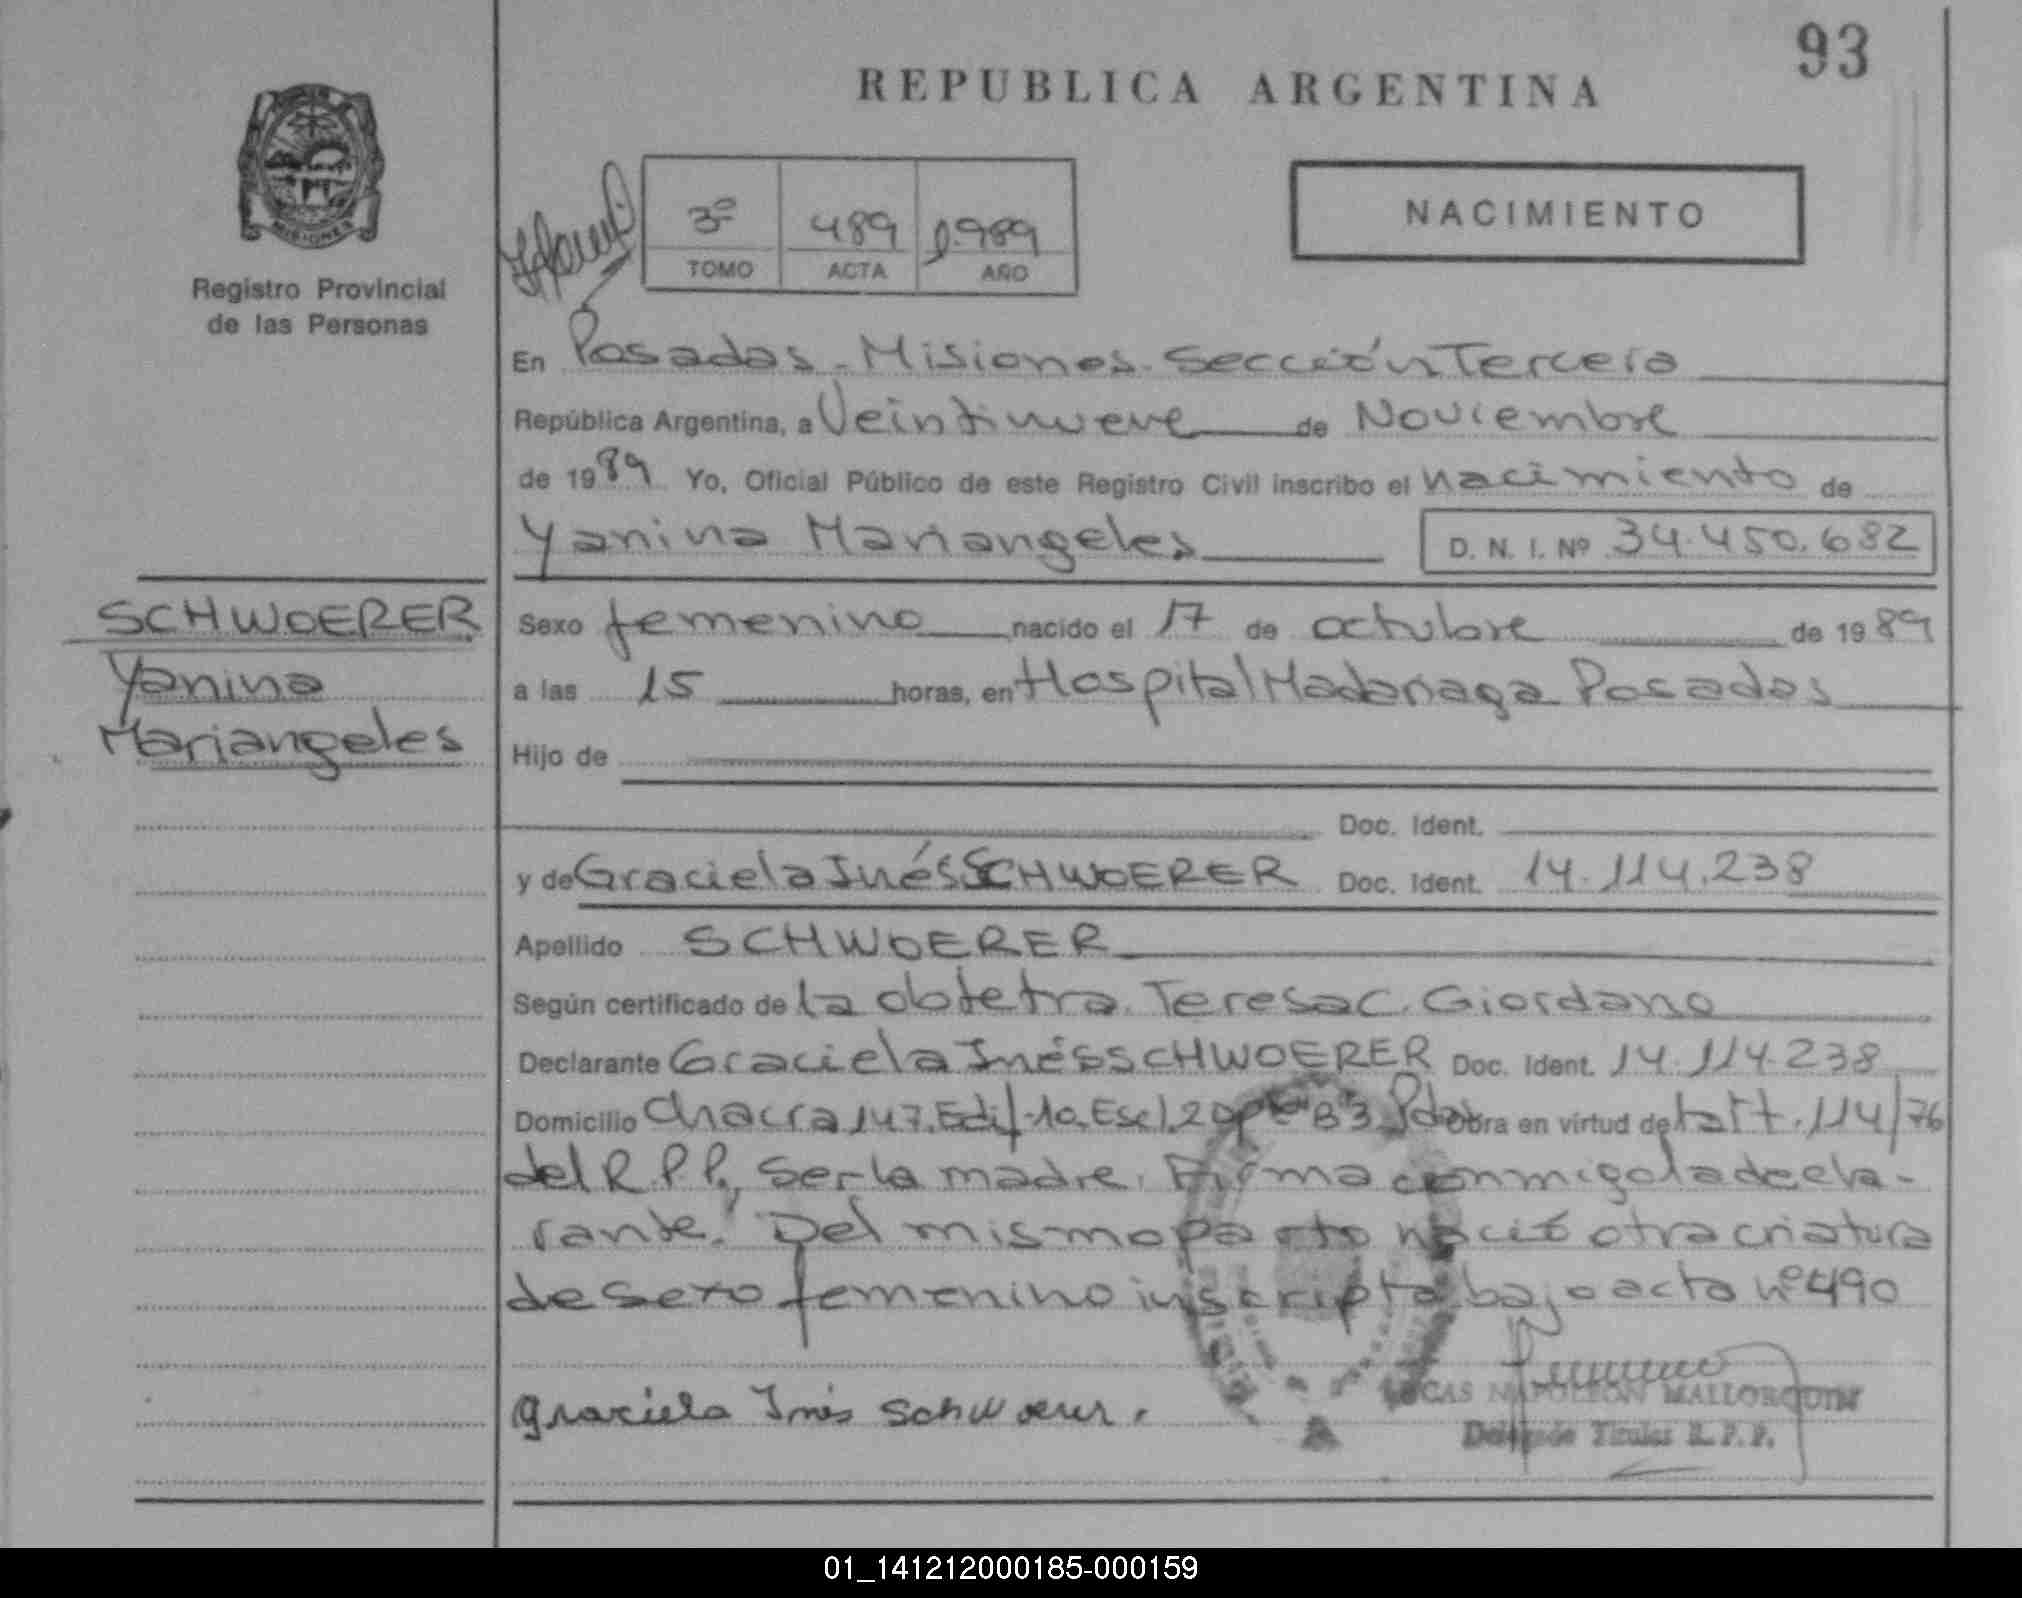 93
REPUBLICA ARGENTINA
MISIONES
Registro Provincial
de las Personas
3º 489 1.989
TOMO ACTA AÑO
NACIMIENTO
En Posadas - Misiones - Sección Tercera
República Argentina, a Veintinueve de Noviembre
de 1989 Yo, Oficial Público de este Registro Civil inscribo el nacimiento de
Yanina Mariangeles D. N. I. Nº 34.450.682
SCHWOERER
Yanina
Mariangeles
Sexo femenino nacido el 17 de octubre de 1989
a las 15 horas, en Hospital Madariaga Posadas
Hijo de
Doc. Ident.
y de Graciela Inés SCHWOERER Doc. Ident. 14.114.238
Apellido SCHWOERER
Según certificado de la obtetra. Teresa C. Giordano
Declarante Graciela Inés SCHWOERER Doc. Ident. 14.114.238
Domicilio Chacra 147. Edif. 10. Esc. 2 B3 obra en virtud de 114/76
del R.P.P., ser la madre. Firma conmigo la decla-
rante. Del mismo parto nació otra criatura
de sexo femenino inscripta bajo acta nº 490
Graciela Inés Schwoerer.
LUCAS NAPOLEON MALLORQUIN
Delegado Titular R.P.P.
01_141212000185-000159